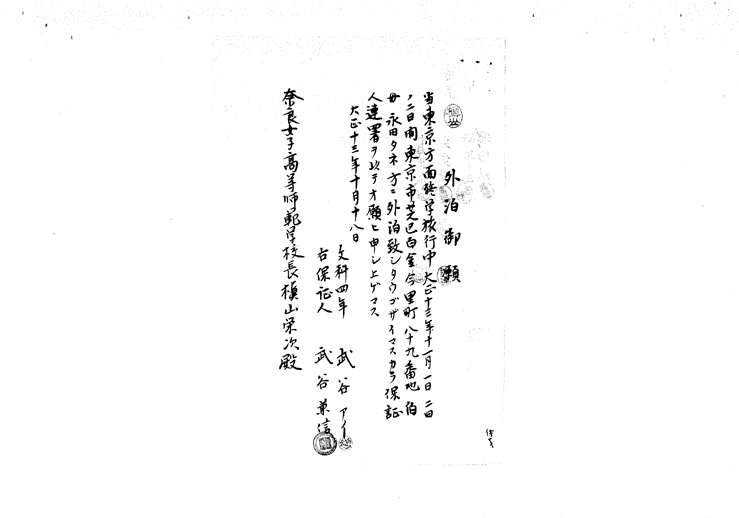 外泊御願
当東京方面修学旅行中大正十三年十一月一日二日
ノ二日間東京市芝区白金今里町八十九番地伯
母永田タネ方ニ外泊致シタウゴザイマスカラ保証
人連署ヲ以テオ願ヒ申シ上ゲマス
大正十三年十月十八日
文科四年 武谷アイ
右保証人 武谷兼信
奈良女子高等師範学校長槇山栄次殿